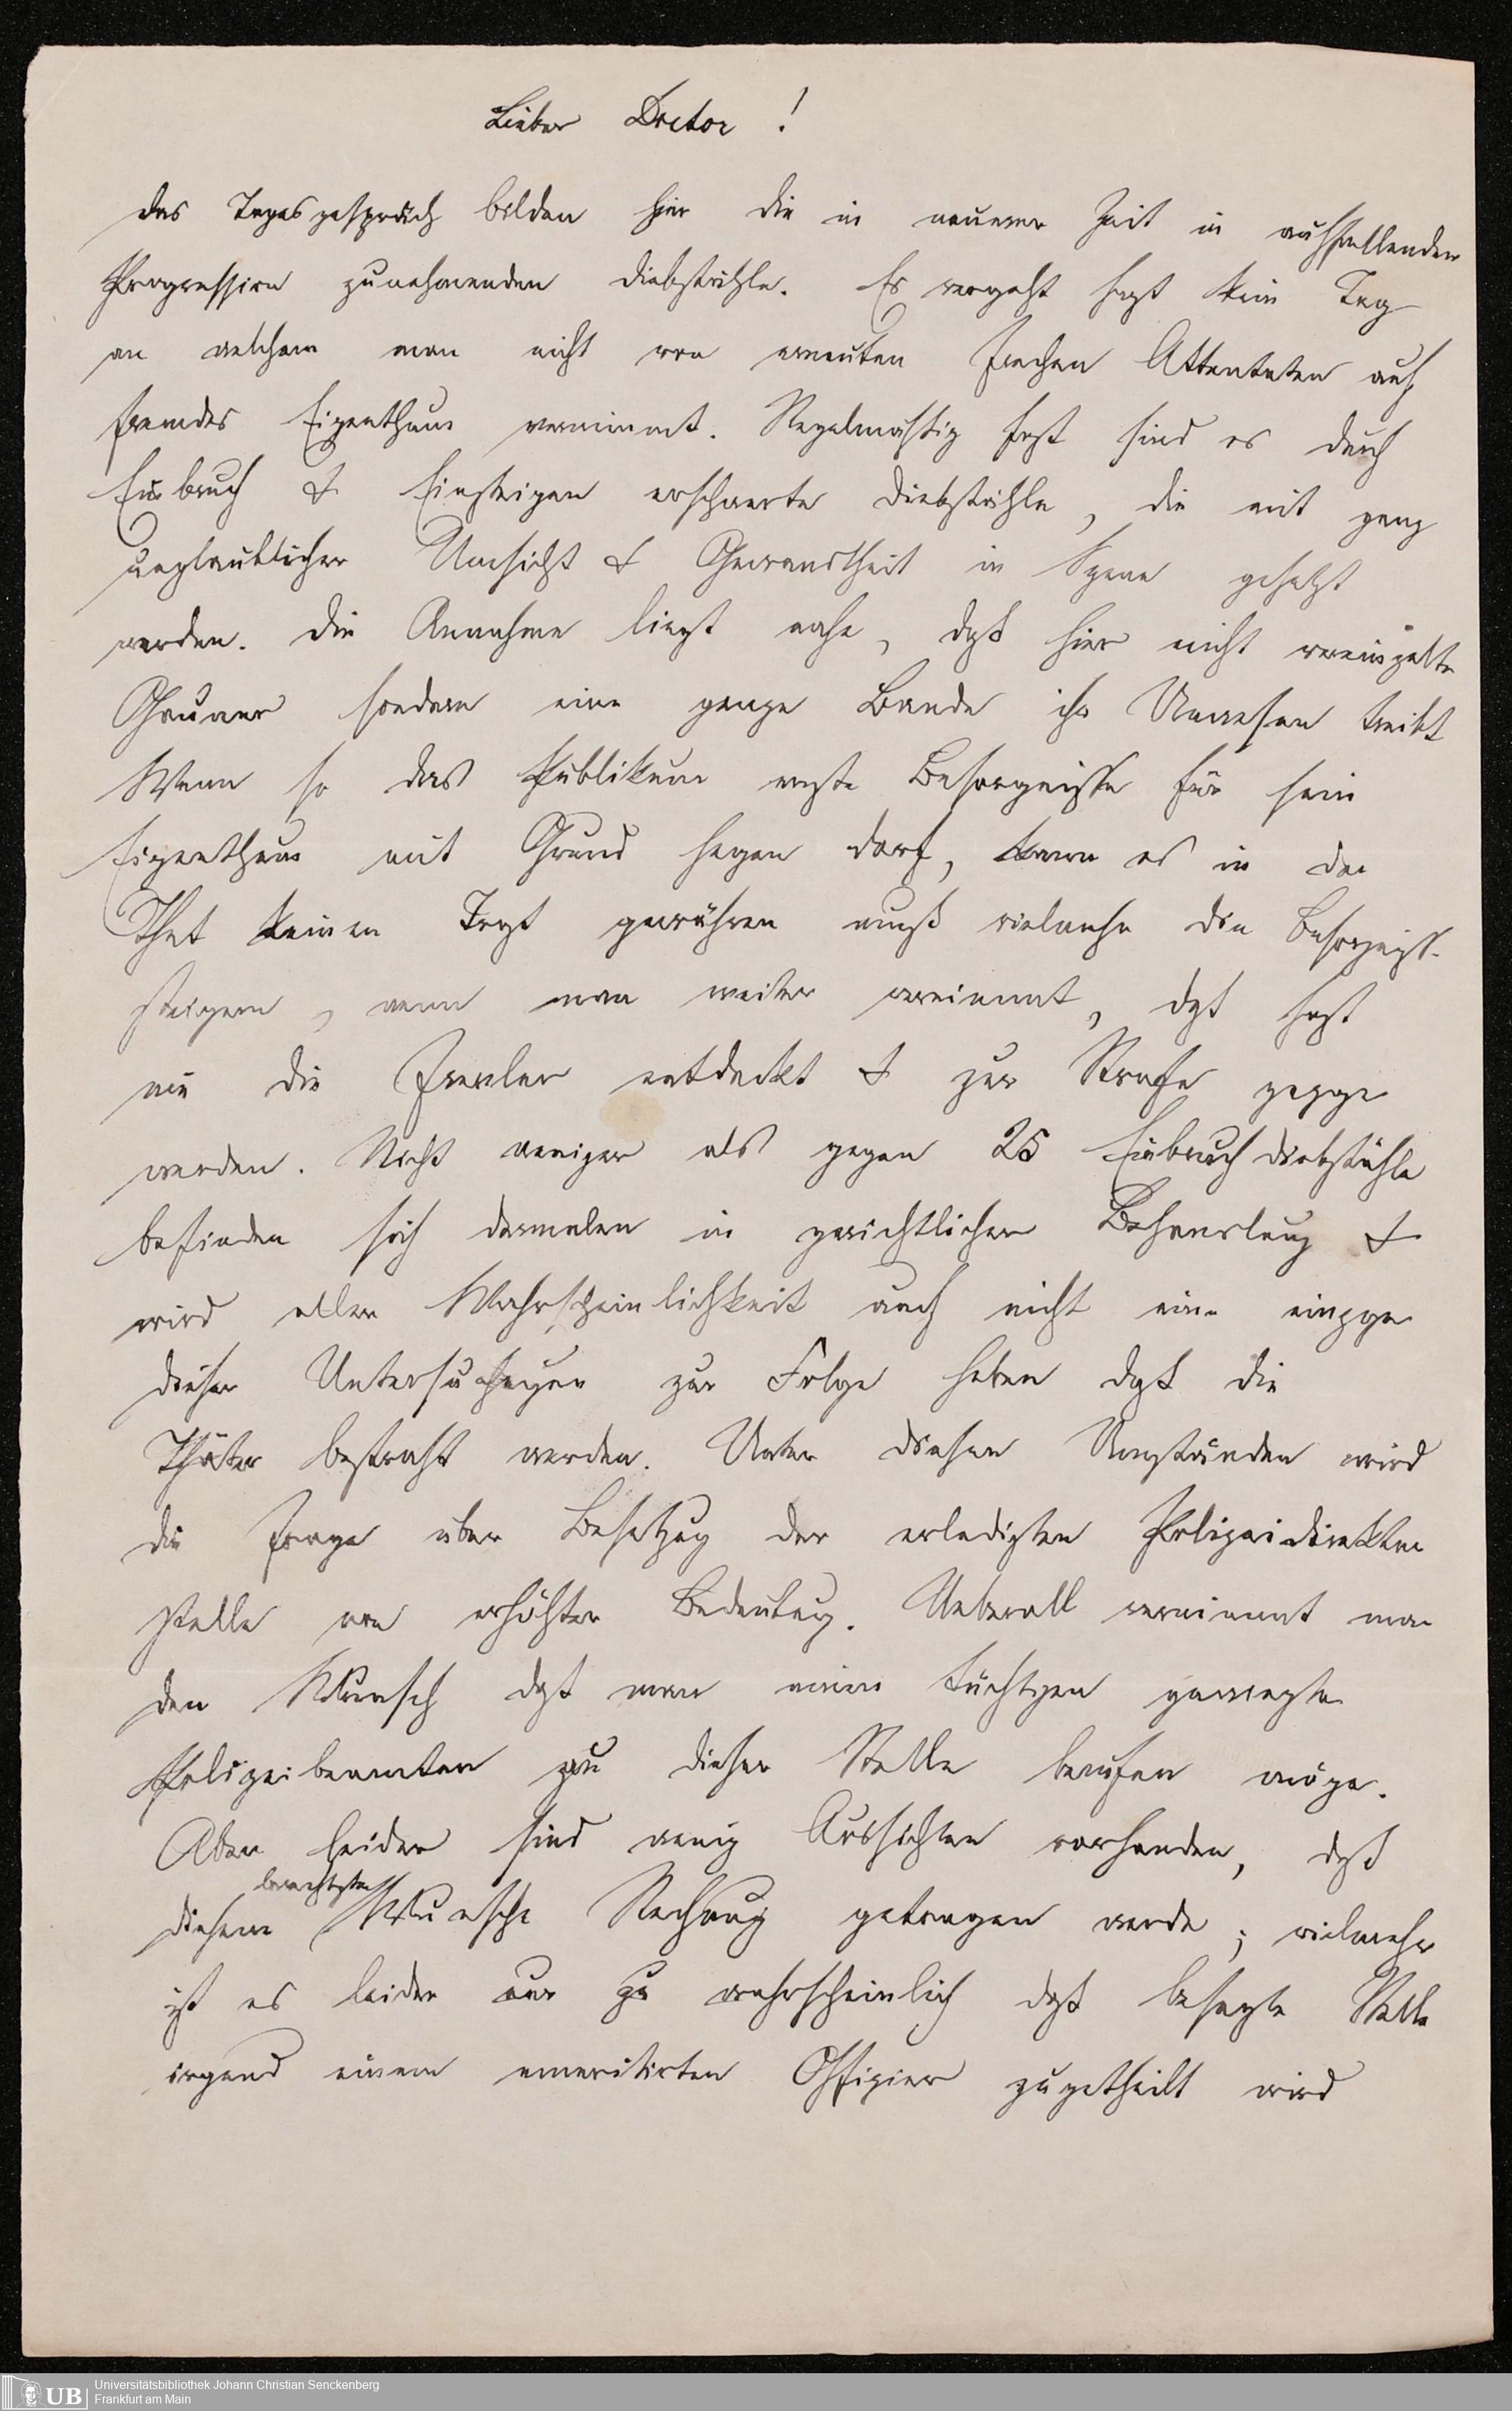 Lieber Doctor !
Das Tagesgespräch bilden hier die in neuerer Zeit in auffallender
Progression zunehmenden Diebstähle. Es vergeht fast kein Tag
an welchem man nicht von erneuten frechen Attentaten auf
fremdes Eigenthum vernimmt. Regelmäßig fast sind es durch
Einbruch & Einsteigen erschwerte Diebstähle, die mit ganz
unglaublicher Umsicht & Gewandtheit in Szene gesetzt
werden. Die Annahme liegt nahe, daß hier nicht vereinzelte
Gauner sondern eine ganze Bande ihr Unwesen treibt
Wenn so das Publikum ernste Besorgnisse für sein
Eigenthum mit Grund hegen darf, kann es in der
That keinen Trost gewähren muß vielmehr die Besorgniß
steigern, wenn man weiter vernimmt, daß fast
nie die Frevler entdeckt & zur Strafe gezogen
werden. Nicht weniger als gegen 25 Einbruchdiebstähle
befinden sich dermalen in gerichtlicher Behandlung &
wird aller Wahrscheinlichkeit auch nicht eine einzige
dieser Untersuchungen zur Folge haben daß die
Thäter bestraft werden. Unter diesen Umständen wird
die Frage über Besetzung der erledigten Polizeidirektor
stelle von erhöhter Bedeutung. Ueberall vernimmt man
den Wunsch daß man einen tüchtigen gewiegten
Polizeibeamten zu dieser Stelle berufen möge.
Aber leider sind wenig Aussichten vorhanden, daß
berechtigten
diesem Wunsche Rechnung getragen werde; vielmehr
ist es leider nur zu wahrscheinlich daß besagte Stelle
irgend einem emeritirten Offizier zugetheilt wird
UB
Universitätsbibliothek Johann Christian Senckenberg
Frankfurt am Main